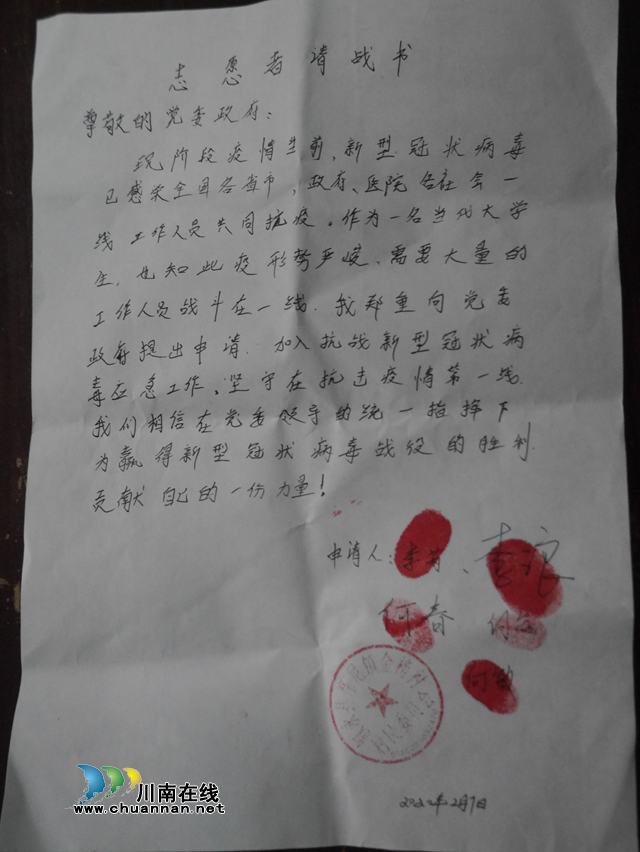 志愿者请战书
尊敬的党委政府：
现阶段疫情当前，新型冠状病毒
已感染全国各省市，政府、医院各社会一
线工作人员共同抗疫。作为一名当代大学
生，也知此疫形势严峻、需要大量的
工作人员战斗在一线。我郑重向党委
政府提出申请，加入抗战新型冠状病
毒应急工作、坚守在抗击疫情第一线。
我们相信在党委领导的统一指挥下
为赢得新型冠状病毒战役的胜利
贡献自己的一份力量！
申请人：李 、李浪
何春
何
2020年2月7日
川南在线
www.chuannan.net